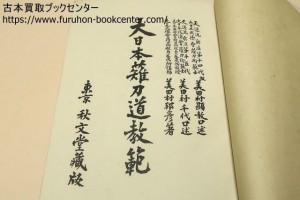 古本買取ブックセンター
https://www.furuhon-bookcenter.com/
美田村顕教口述
美田村千代口述
美田村邦彦著
大日本薙刀道教範
東京 秋文堂蔵版